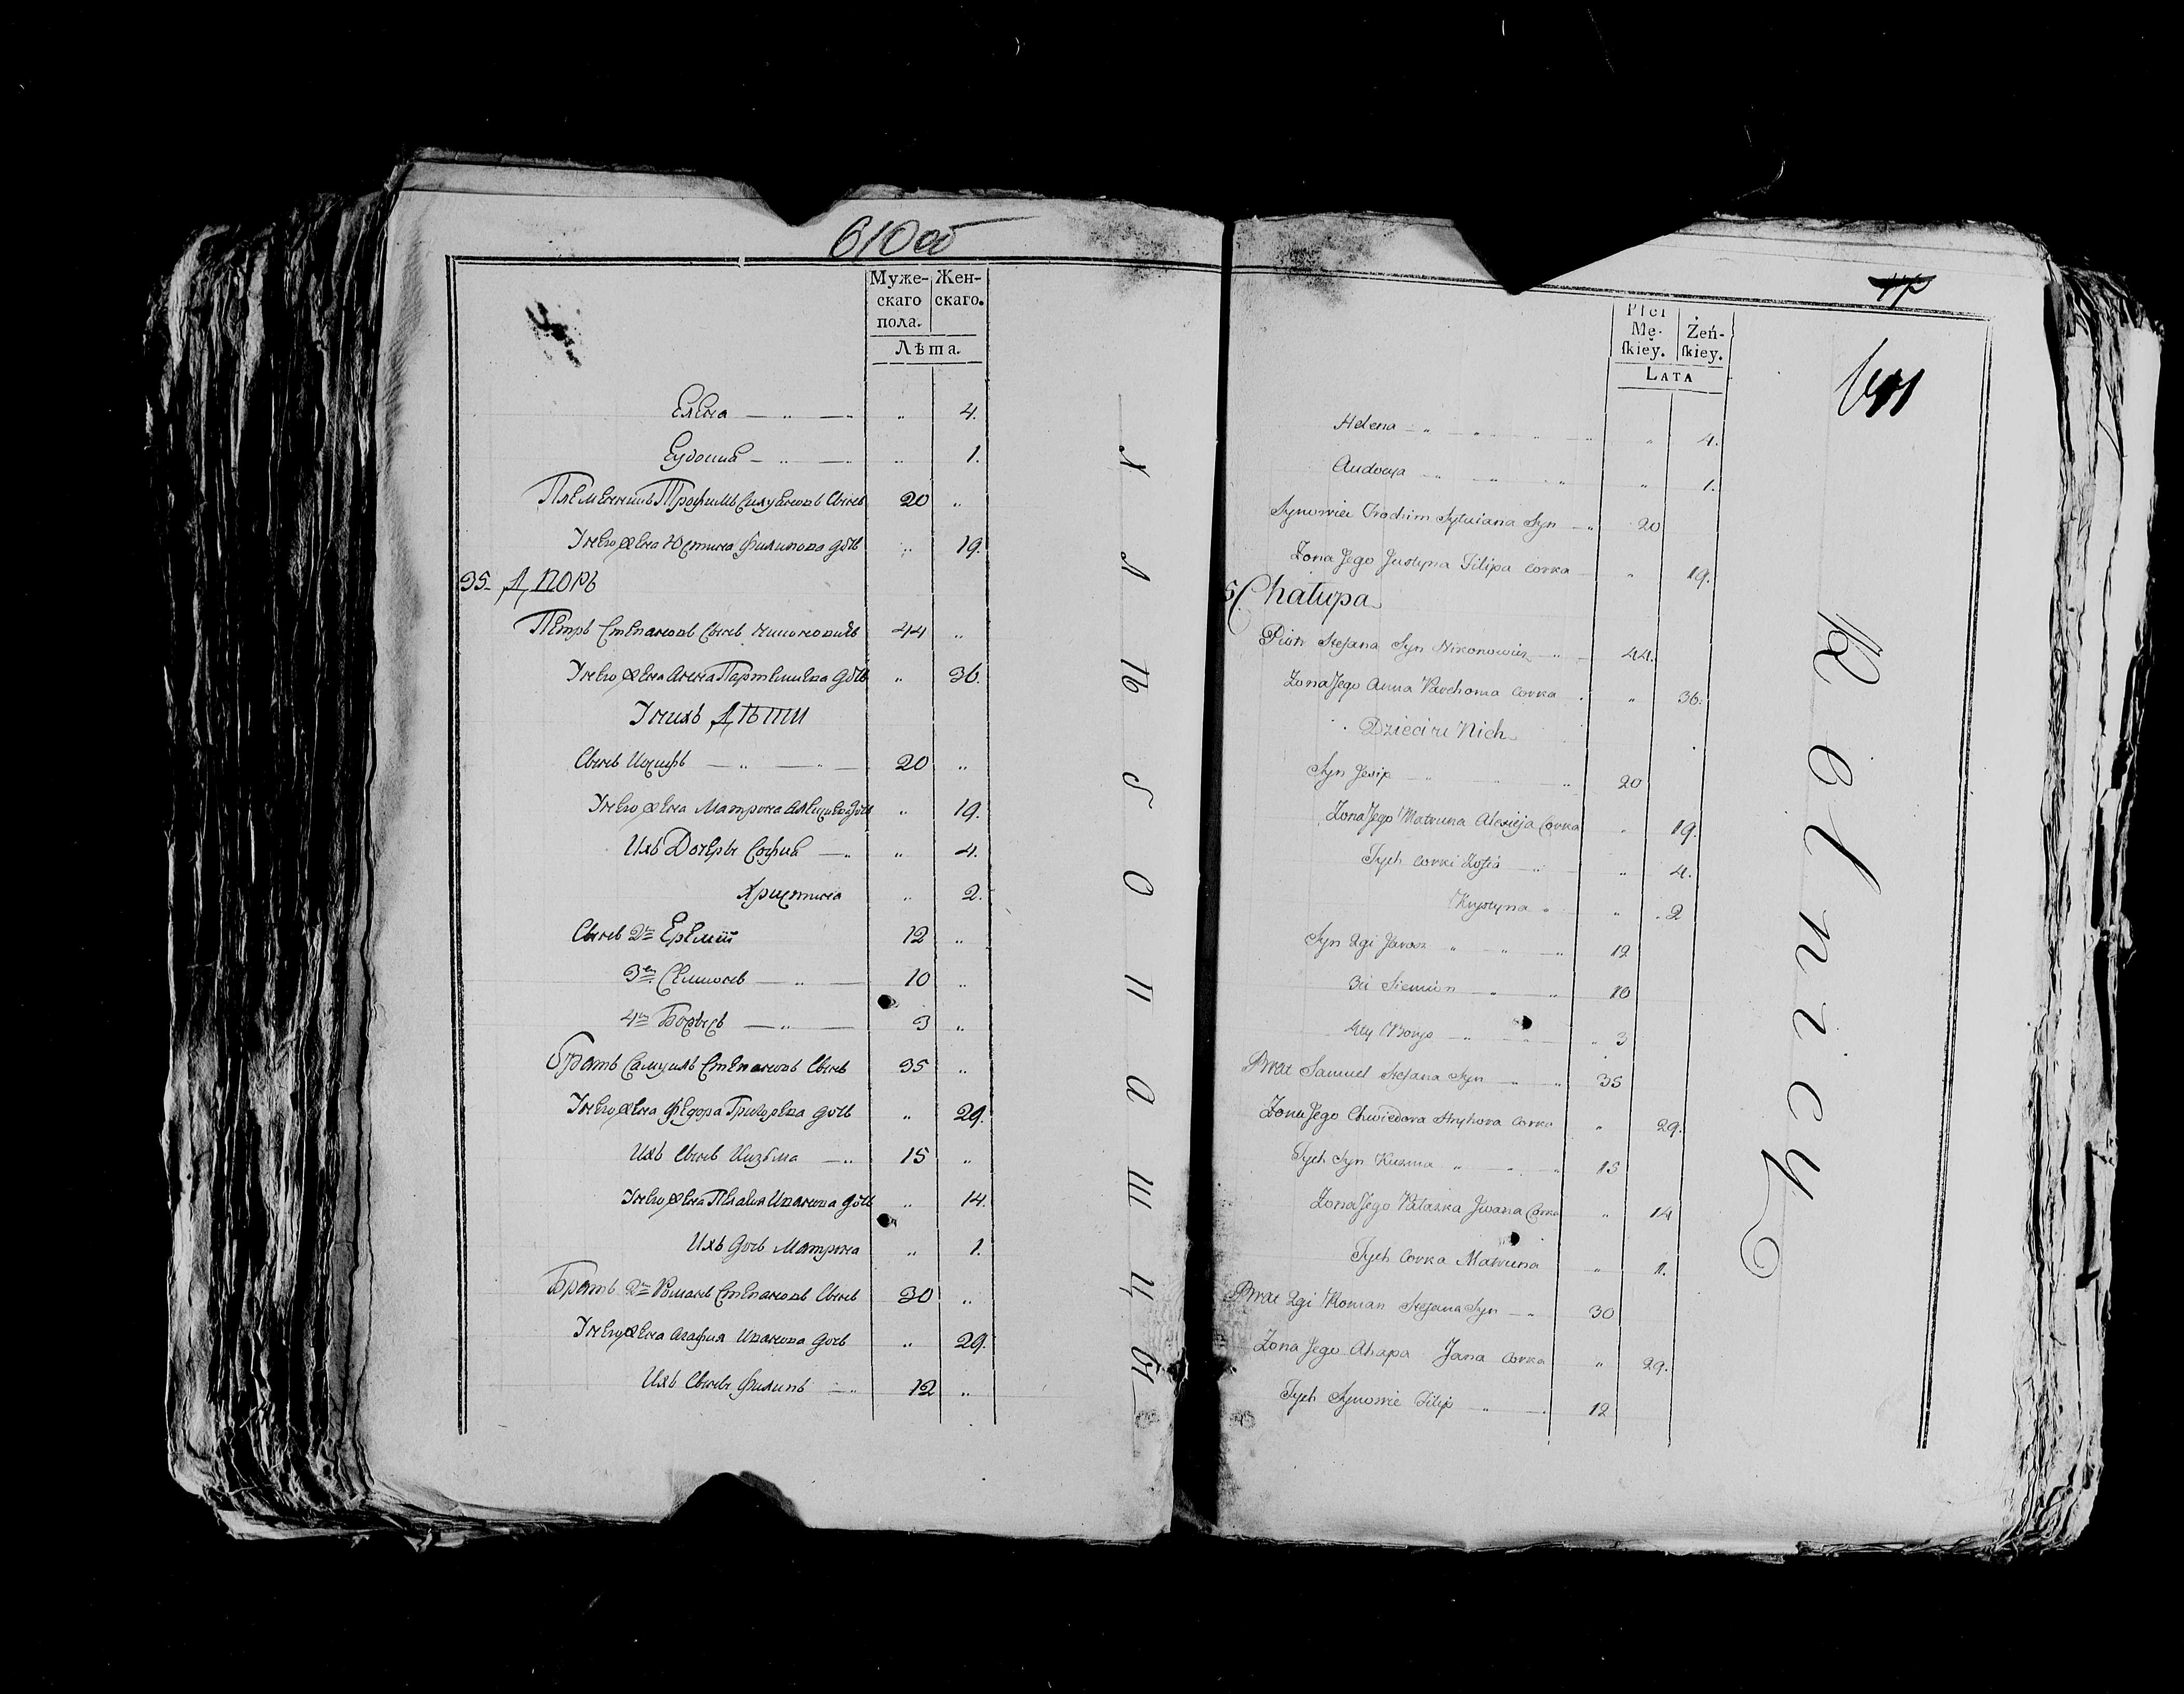 610 об
Муже- Жен-
скаго скаго.
пола.
Лѣта.
Елена — „ — „ 4.
Еудокиа — „ — „ 1.
Племенникъ Трофимъ Силуановъ Сынъ 20 „
У него жена Юстина Филипова дочь „ 19.
35. ДВОРЪ
Петръ Степановъ Сынъ Никоновичъ 44 „
У него жена Анна Пархемиева дочь „ 36.
У нихъ ДѢТИ
Сынъ Иосифъ — „ — „ 20 „
У него жена Матрона Алексиева дочь „ 19.
Ихъ Дочеры Софиа — „ „ 4.
Христина „ 2.
Сынъ 2й Еремій 12 „
3й Семионъ — „ — 10 „
4й Борысъ — „ — 3 „
Братъ Самуилъ Степановъ Сынъ 35 „
У него жена Федора Григорева дочь „ 29.
Ихъ Сынъ Кизьма — „ 15 „
У него жена Пелагия Иванова дочь „ 14.
Ихъ дочь Матрона „ 1.
Братъ 2й Романъ Степановъ Сынъ 30 „
У него жена Агафия Иванова дочь „ 29.
Ихъ Сыны Филипъ — „ 12 „
хлѣбопашцы
Płci
Mę- Żeń-
skiey. skiey.
LATA
Helena „ 4.
Audocya „ 1.
Synowiec Trochim Sylwiana Syn „ 20
Zona Jego Justyna Filipa Corka „ 19.
5 Chałupa
Piotr Stefana Syn Nikonowicz „ 44.
Zona Jego Anna Parchoma Corka „ 36.
Dzieci u Nich
Syn Jesip „ 20
Zona Jego Matruna Alexieja Corka „ 19.
Tych Corki Zofia „ 4.
Krystyna „ 2
Syn 2gi Jarosz „ 12
3ci Siemion „ 10
4ty Borys „ 3
Brat Samuel Stefana Syn „ 35
Zona Jego Chwiedora Hryhora Corka „ 29.
Tych Syn Kuzma „ 15
Zona Jego Palazka Jwana Corka „ 14
Tych Corka Matruna „ 1.
Brat 2gi Roman Stefana Syn „ 30
Zona Jego Ahapa Jana Corka „ 29.
Tych Synowie Filip „ 12
Rolnicy